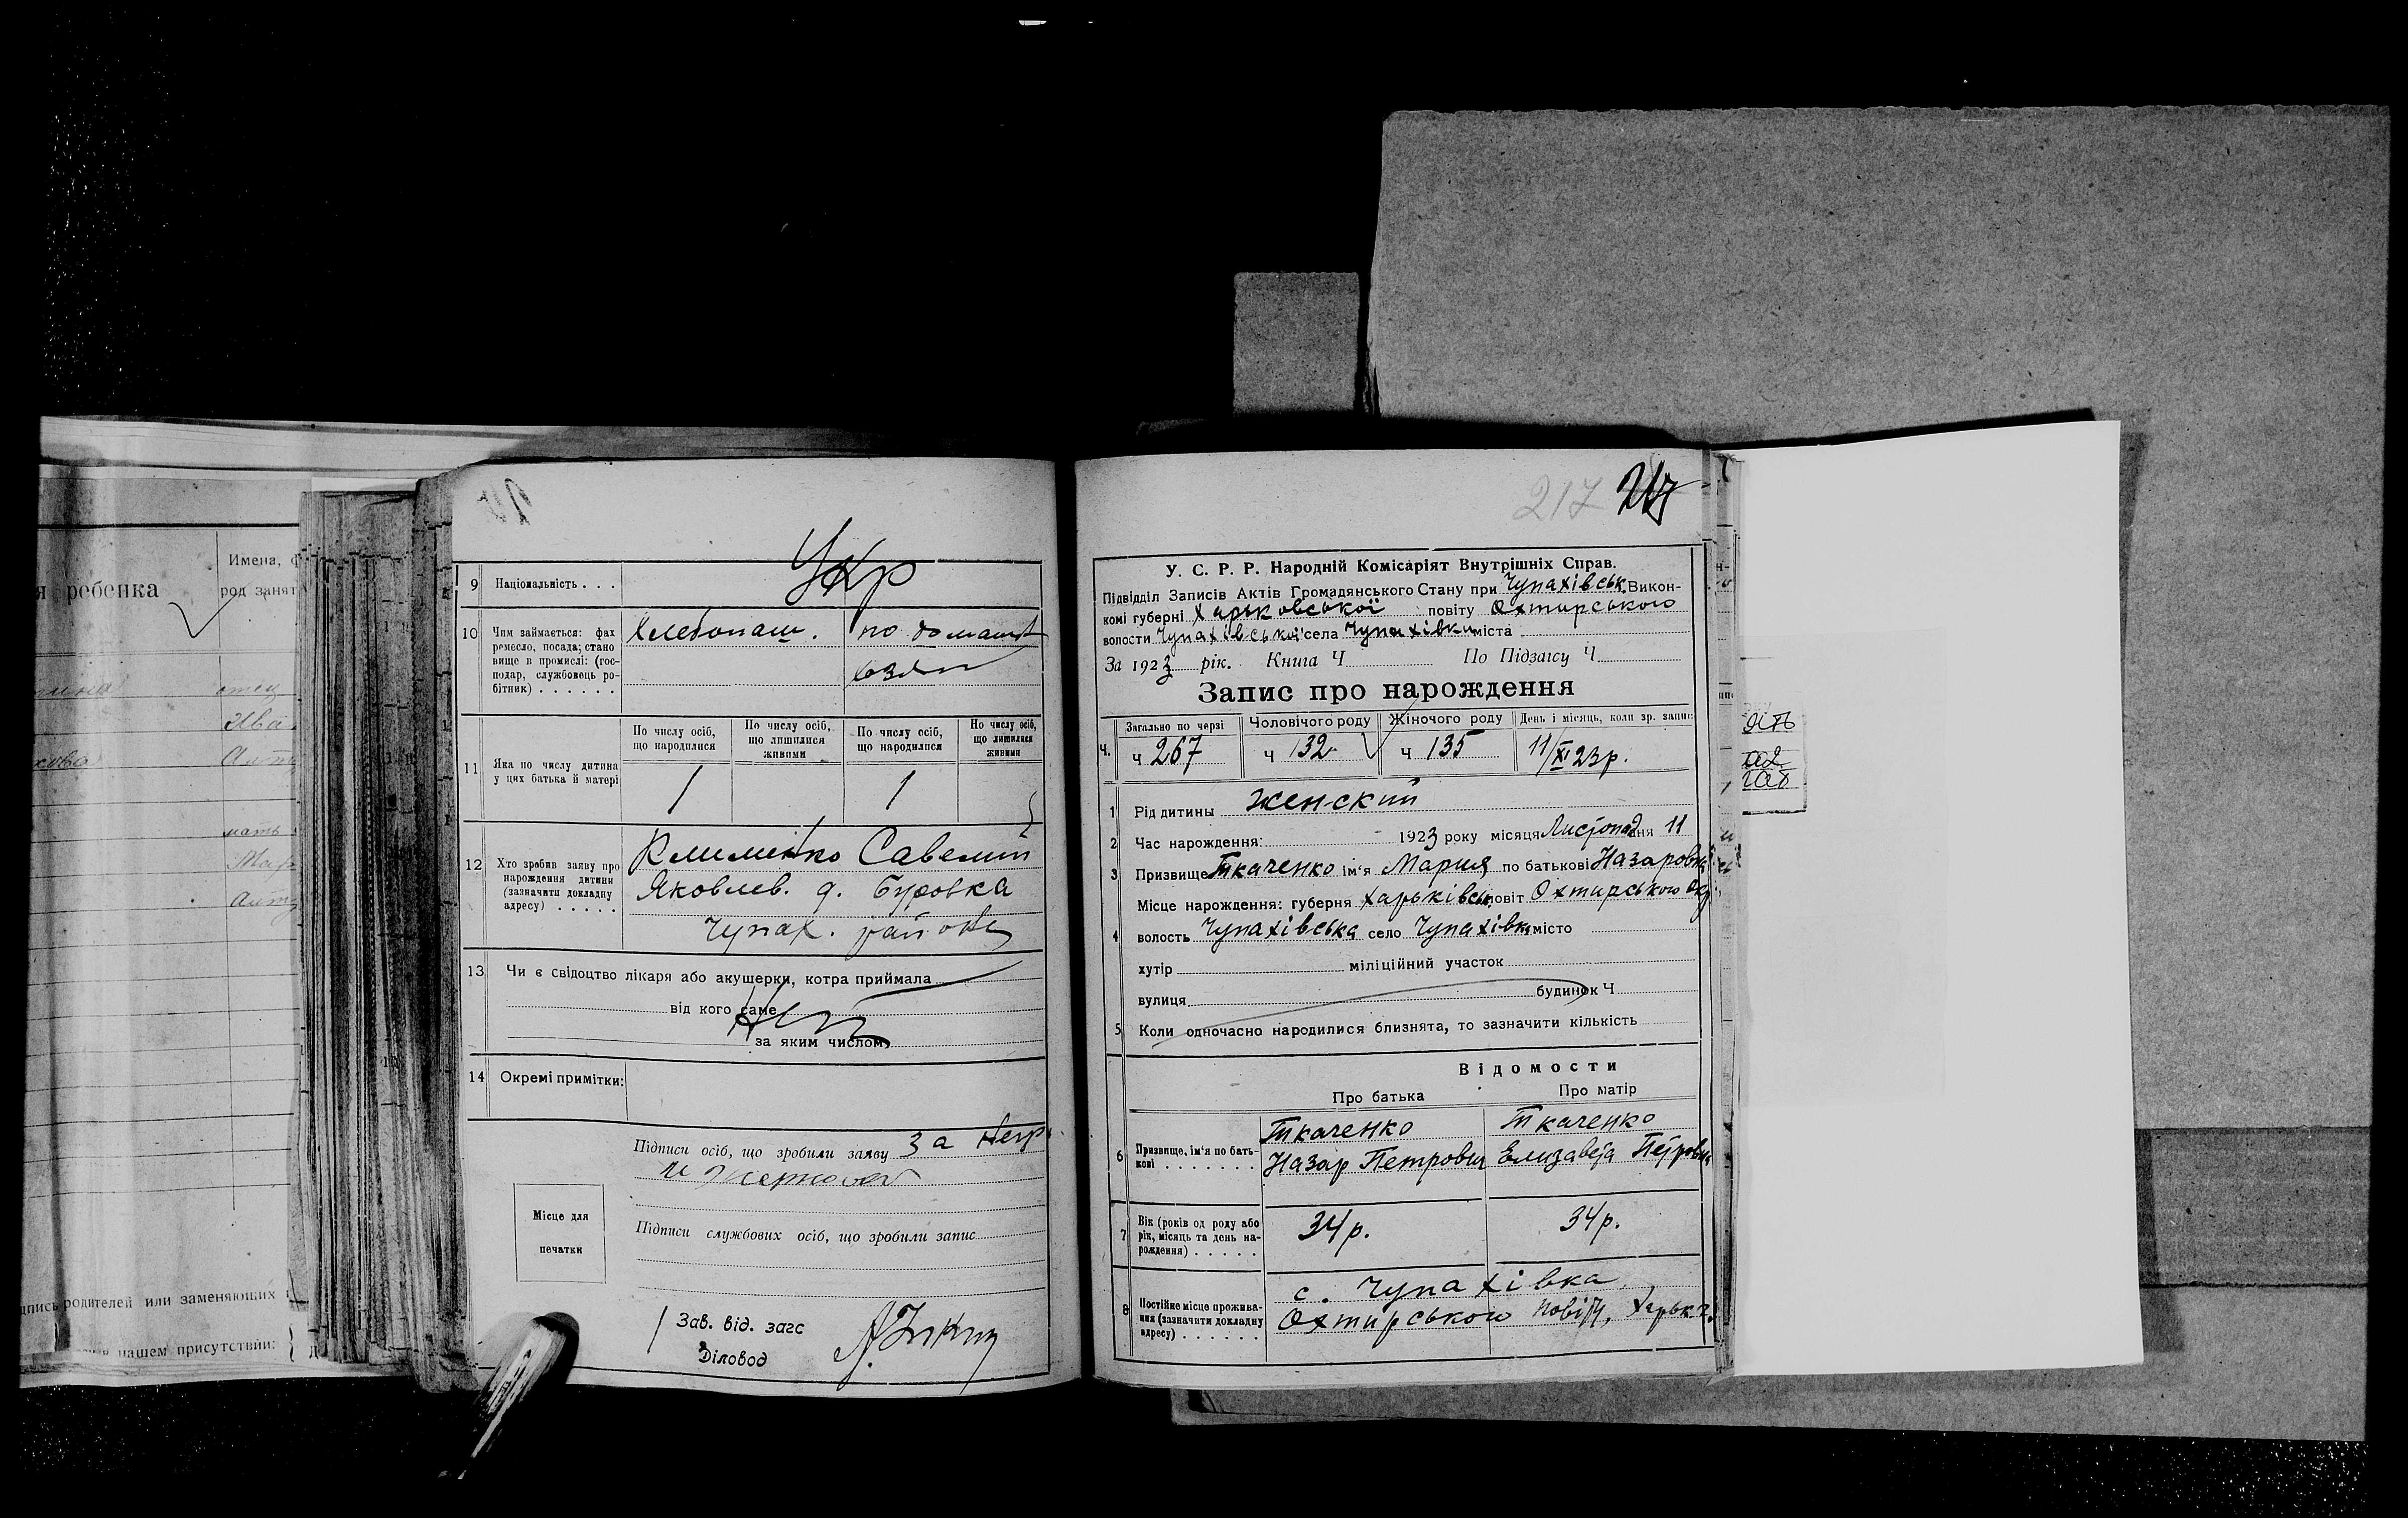 я ребенка
Имена, ф
род занят
отец
Ива
мать
Мар
дпись родителей или заменяющих
в нашем присутствии:
Укр
9 Національність . . .
10 Чим займається: фах
ремесло, посада; стано
вище в промислі: (гос-
подар, службовець ро-
бітник) . . . . . .
Хлебопаш. по домашн
По числу осіб,
що народилися
По числу осіб,
що лишилися
живими
По числу осіб,
що народилися
Но числу осіб,
що лишилися
живими
11 Яка по числу дитина
у цих батька й матері
1 1
12 Хто зробив заяву про
нарождення дитини
(зазначити докладну
адресу) . . . . .
Клименко Савелий
Яковлев. д. Буровка
Чупах. района
13 Чи є свідоцтво лікаря або акушерки, котра приймала
від кого саме
за яким числом
14 Окремі примітки:
Підписи осіб, що зробили заяву За негр
Місце для
печатки
Підписи службових осіб, що зробили запис
Зав. від. загс
Діловод
217 217
У. С. Р. Р. Народній Комісаріят Внутрішніх Справ.
Підвідділ Записів Актів Громадянського Стану при Чупахівськ. Викон-
комі губерні Харьковської повіту Охтирського
волости Чупахівської села Чупахівки міста
За 1923 рік. Книга Ч По Підзагсу Ч
Запис про нарождення
Загально по черзі Чоловічого роду Жіночого роду День і місяць, коли зр. запис
Ч. ч 267 ч 132 ч 135 11/XI 23р.
1 Рід дитины женский
2 Час нарождення: 1923 року місяця Листопад дня 11
3 Призвище Ткаченко ім'я Мария по батькові Назаровна
4 Місце нарождення: губерня Харьківськ. повіт Охтирського Окр
волость Чупахівська село Чупахівка місто
хутір міліційний участок
вулиця будинок Ч
5 Коли одночасно народилися близнята, то зазначити кількість
Відомости
Про батька Про матір
6 Призвище, ім'я по бать-
кові . . . . . . .
Ткаченко Ткаченко
Назар Петрович Елизавета Петровна
7 Вік (років од роду або
рік, місяць та день на-
рождення) . . . . .
34р. 34р.
8 Постійне місце прожива-
ння (зазначити докладну
адресу) . . . . . .
с. Чупахівка
Охтирського повіту, Харьк г.